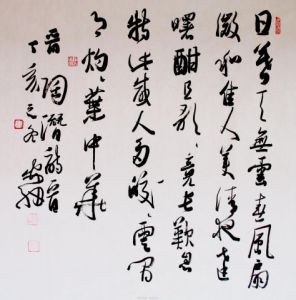 日暮天無雲春風扇
微和佳人美清夜達
曙酣且歌〻竟長歎息
持此感人多皎〻雲間
月灼〻葉中華
晋陶潛詩
丁亥之冬